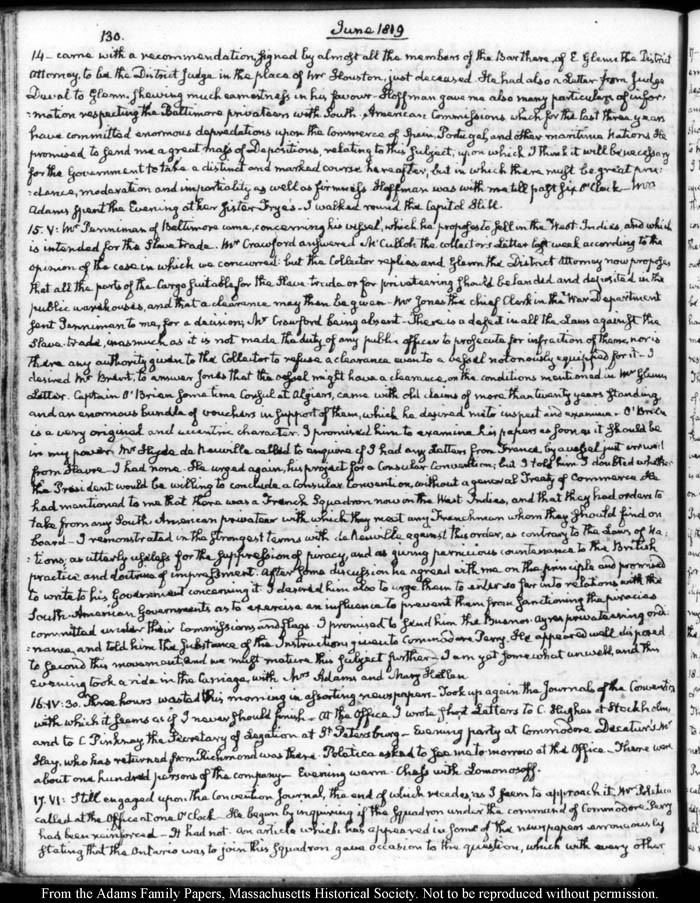 130.
June 1819
14 – came with a recommendation, signed by almost all the members of the Bar there, of E. Glenn the District
Attorney, to be the District Judge in the place of Mr Houston, just deceased. He had also a Letter from Judge
Duval to Glenn, shewing much earnestness in his favour. Hoffman gave me also many particulars of infor-
:mation respecting the Baltimore privateers with South-American Commissions, which for the last three years
have committed enormous depredations upon the Commerce of Spain, Portugal, and other maritime Nations. He
promised to send me a great mass of Depositions, relating to this subject, upon which I think it will be necessary
for the Government to take a distinct and marked course hereafter, but in which there must be great pru-
:dence, moderation and impartiality as well as firmness. Hoffman was with me till past six O'Clock – Mrs
Adams spent the Evening at her Sister Frye's – I walked round the Capitol Hill.
15. V: Mr Penniman of Baltimore came, concerning his vessel, which he proposes to sell in the West-Indies and which
is intended for the Slave trade. Mr Crawford answered McCulloh the collector's Letter last week according to the
opinion of the case in which we concurred: but the Collector replies and Glenn the District Attorney now proposes
that all the parts of the Cargo suitable for the Slave trade or for privateering should be landed and deposited in the
public warehouses, and that a clearance may then be given – Mr Jones the chief Clerk in the War Department
sent Penniman to me, for a decision, Mr Crawford being absent – There is a defect in all the Laws against the
Slave-trade, inasmuch as it is not made the duty of any public officer to prosecute for infraction of them, nor is
there any authority given to the Collector to refuse a clearance even to a vessel notoriously equipped for it – I
desired Mr Brent, to answer Jones that the vessel might have a clearance, on the conditions mentioned in Mr Glenn's
Letter. Captain O'Brien some time Consul at Algiers, came with old claims of more than twenty years standing
and an enormous bundle of vouchers in support of them, which he desired me to inspect and examine – O'Brien
is a very original and eccentric character. I promised him to examine his papers as soon as it should be
in my power. Mr Hyde de Neuville called to enquire if I had any Letters from France, by a vessel just arrived
from Havre – I had none. He urged again, his project for a Consular Convention; but I told him I doubted whether
the President would be willing to conclude a Consular Convention, without a general Treaty of Commerce. He
had mentioned to me that there was a French Squadron now in the West Indies, and that they had orders to
take from any South American privateer with which they meet any Frenchman whom they should find on
board – I remonstrated in the strongest terms with de Neuville against this order, as contrary to the Laws of Na-
:tions; as utterly useless for the suppression of piracy, and as giving pernicious countenance to the British
practice and doctrine of impressment. After some discussion he agreed with me on the principle and promised
to write to his Government concerning it. I desired him also to urge them to enter so far into relations with the
South-American Governments as to exercise an influence to prevent them from sanctioning the piracies
committed under their Commissions and flags. I promised to send him the Buenos-ayres privateering ordi-
:nance, and told him the substance of the Instructions given to Commodore Perry. He appeared well disposed
to second this movement, and we must mature this subject further – I am yet somewhat unwell, and this
evening took a ride in the Carriage, with Mrs Adams and Mary Hellen.
16. IV:30. Three hours wasted this morning in assorting newspapers. Took up again the Journals of the Convention
with which it seems as if I never should finish – At the Office I wrote short Letters to C. Hughes at Stockholm,
and to C. Pinkney the Secretary of Legation at St Petersburg – Evening party at Commodore Decatur's Mr
Hay, who has returned from Richmond was there. Poletica asked to see me to-morrow at the Office – There were
about one hundred persons of the company – Evening warm – Chess with Lomonosoff.
17. VI: Still engaged upon the Convention Journal, the end of which recedes, as I seem to approach it. Mr Poletica
called at the Office at one O'Clock – He began by inquiring if the Squadron under the command of Commodore Perry
had been reinforced – It had not. An article which has appeared in some of the newspapers erroneously
stating that the Ontario was to join this Squadron gave occasion to the question, which with every other
From the Adams Family Papers, Massachusetts Historical Society. Not to be reproduced without permission.